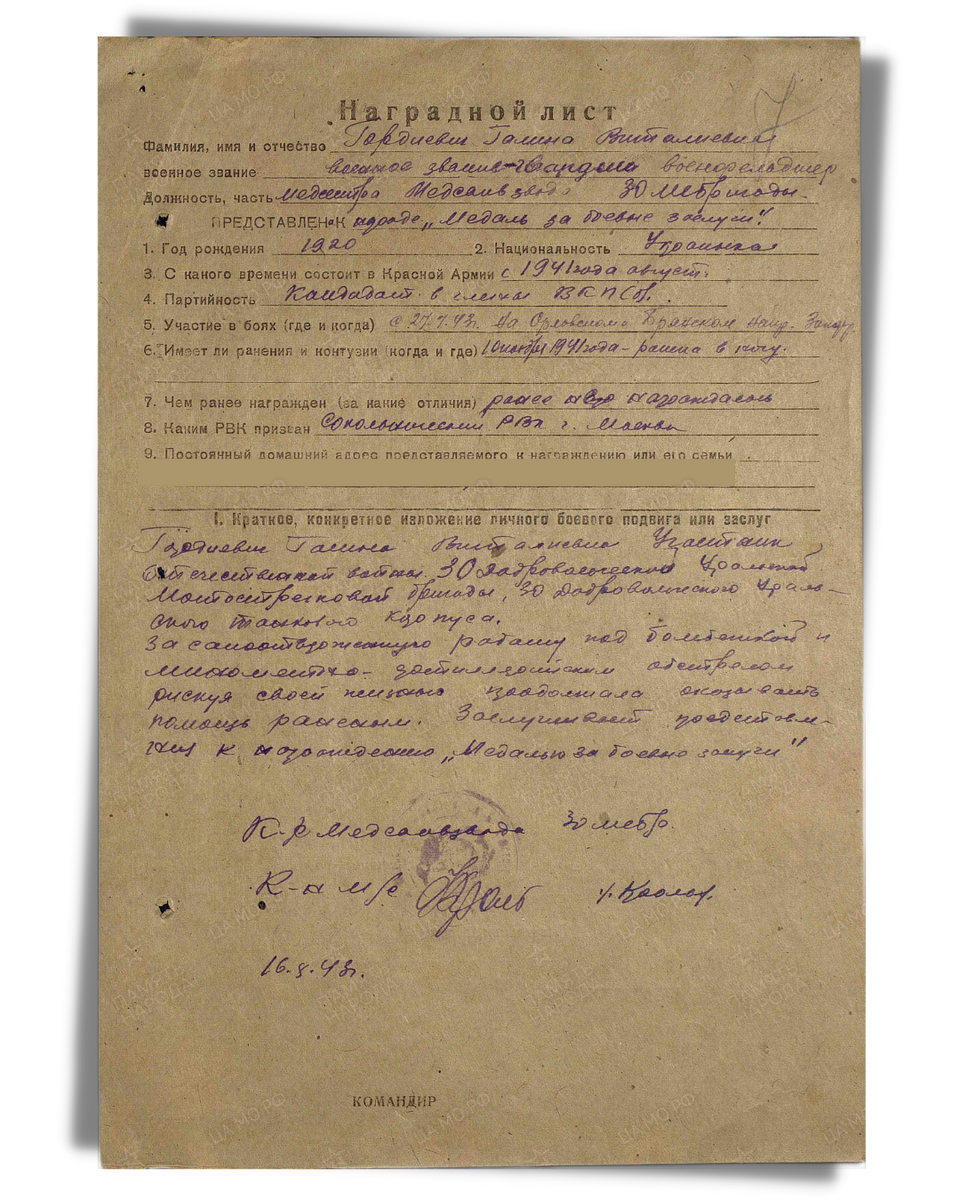 7
Наградной лист
Фамилия, имя и отчество Гордиевич Галина Виталиевна
военное звание военное звание-гвардии военфельдшер
Должность, часть медсестра Медсанвзвода 30 МСбригады.
ПРЕДСТАВЛЕН К награде „Медаль за боевые заслуги".
1. Год рождения 1920 2. Национальность Украинка
3. С какого времени состоит в Красной Армии с 1941 года август.
4. Партийность Кандидат в члены ВКП(б).
5. Участие в боях (где и когда) с 27.7.43г. На Орловском Брянском напр. Запфр.
6. Имеет ли ранения и контузии (когда и где) 1941 года - ранена в ногу.
7. Чем ранее награжден (за какие отличия) ранее не награждалась
8. Каким РВК призван Сокольническим РВК г. Москвы
9. Постоянный домашний адрес представляемого к награждению или его семьи
I. Краткое, конкретное изложение личного боевого подвига или заслуг
Гордиевич Галина Виталиевна Участник
Отечественной войны. 30 Добровольческой Уральской
Мотострелковой бригады, 30 Добровольческого Ураль-
ского танкового Корпуса.
За самоотверженную работу под бомбежкой и
минометно- артиллерийским обстрелом
рискуя своей жизнью продолжала оказывать
помощь раненым. Заслуживает представле-
ния к награждению „Медалью за боевые заслуги"
К-р Медсанвзвода 30 мсбр.
К-н м/с Кроль /Кроль/.
16.8.43г.
КОМАНДИР